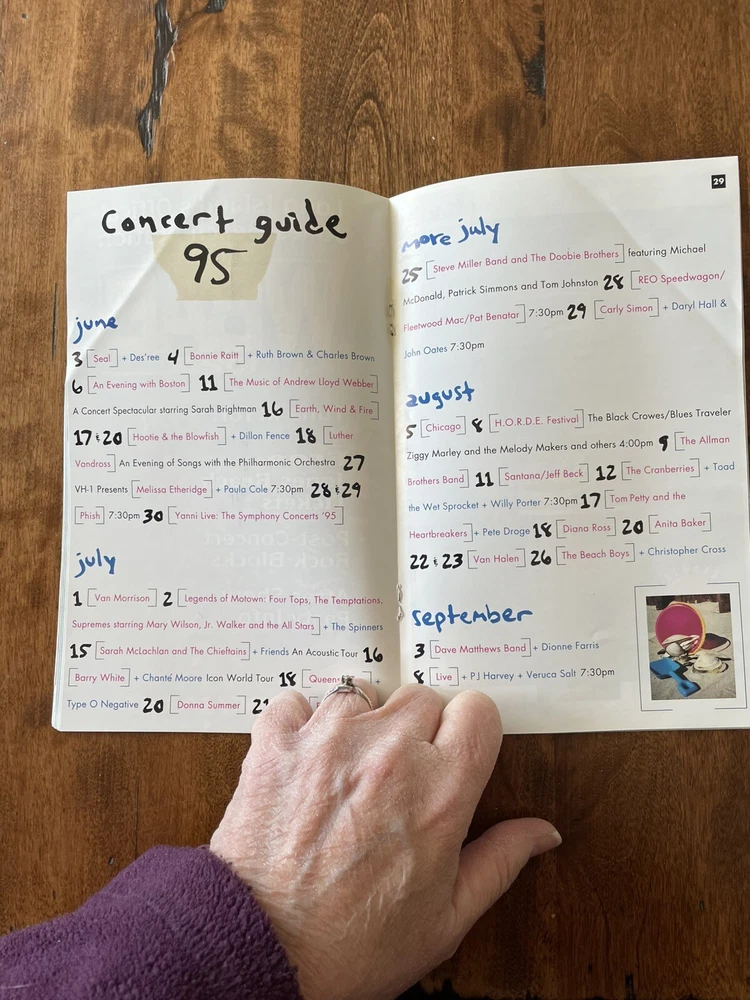 Concert guide
95
june
3 [Seal] + Des'ree 4 [Bonnie Raitt] + Ruth Brown & Charles Brown
6 [An Evening with Boston] 11 [The Music of Andrew Lloyd Webber]
A Concert Spectacular starring Sarah Brightman 16 [Earth, Wind & Fire]
17 & 20 [Hootie & the Blowfish] + Dillon Fence 18 [Luther
Vandross] An Evening of Songs with the Philharmonic Orchestra 27
VH-1 Presents [Melissa Etheridge] + Paula Cole 7:30pm 28 & 29
[Phish] 7:30pm 30 [Yanni Live: The Symphony Concerts '95]
july
1 [Van Morrison] 2 [Legends of Motown: Four Tops, The Temptations,
Supremes starring Mary Wilson, Jr. Walker and the All Stars] + The Spinners
15 [Sarah McLachlan and The Chieftains] + Friends An Acoustic Tour 16
[Barry White] + Chanté Moore Icon World Tour 18 [Queens +
Type O Negative 20 [Donna Summer] 21
29
more july
25 [Steve Miller Band and The Doobie Brothers] featuring Michael
McDonald, Patrick Simmons and Tom Johnston 28 [REO Speedwagon/
Fleetwood Mac/Pat Benatar] 7:30pm 29 [Carly Simon] + Daryl Hall &
John Oates 7:30pm
august
5 [Chicago] 8 [H.O.R.D.E. Festival] The Black Crowes/Blues Traveler
Ziggy Marley and the Melody Makers and others 4:00pm 9 [The Allman
Brothers Band] 11 [Santana/Jeff Beck] 12 [The Cranberries] + Toad
the Wet Sprocket + Willy Porter 7:30pm 17 [Tom Petty and the
Heartbreakers] + Pete Droge 18 [Diana Ross] 20 [Anita Baker]
22 & 23 [Van Halen] 26 [The Beach Boys] + Christopher Cross
september
3 [Dave Matthews Band] + Dionne Farris
8 [Live] + PJ Harvey + Veruca Salt 7:30pm